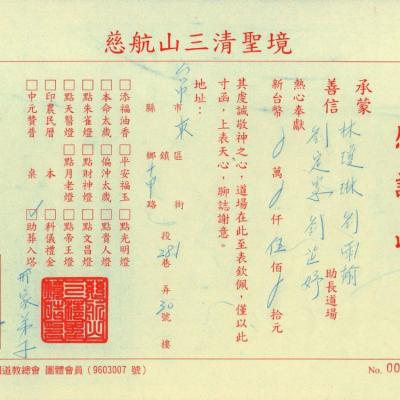 慈航山三清聖境
承蒙
善信
林瓊琳 劉
劉定 劉芷妤
助長道場
熱心奉獻
新台幣 萬 仟伍佰 拾元
其度誠敬神之心,道場在此至表欽佩,僅以此
寸函,上表天心,聊誌謝意。
地址:
台中市 東區 街
縣 鄉鎮 十甲路 段 281巷 弄 30號 樓
□添福油香 □平安福玉 □點光明燈
□本命太歲 □偏沖太歲 □點貴人燈
□點朱雀燈 □點財神燈 □點文昌燈
□點天醫燈 □點月老燈 □點帝王燈
□印農民曆 本 □科儀禮金
□中元贊普 桌 ✓助葬入塔
邢家弟子
道教總會 團體會員(9603007 號)
No. 00